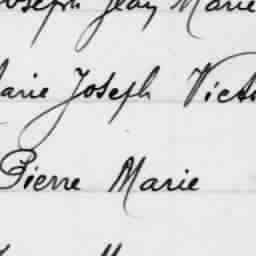 Joseph Jean Marie
Marie Joseph Vict
Pierre Marie